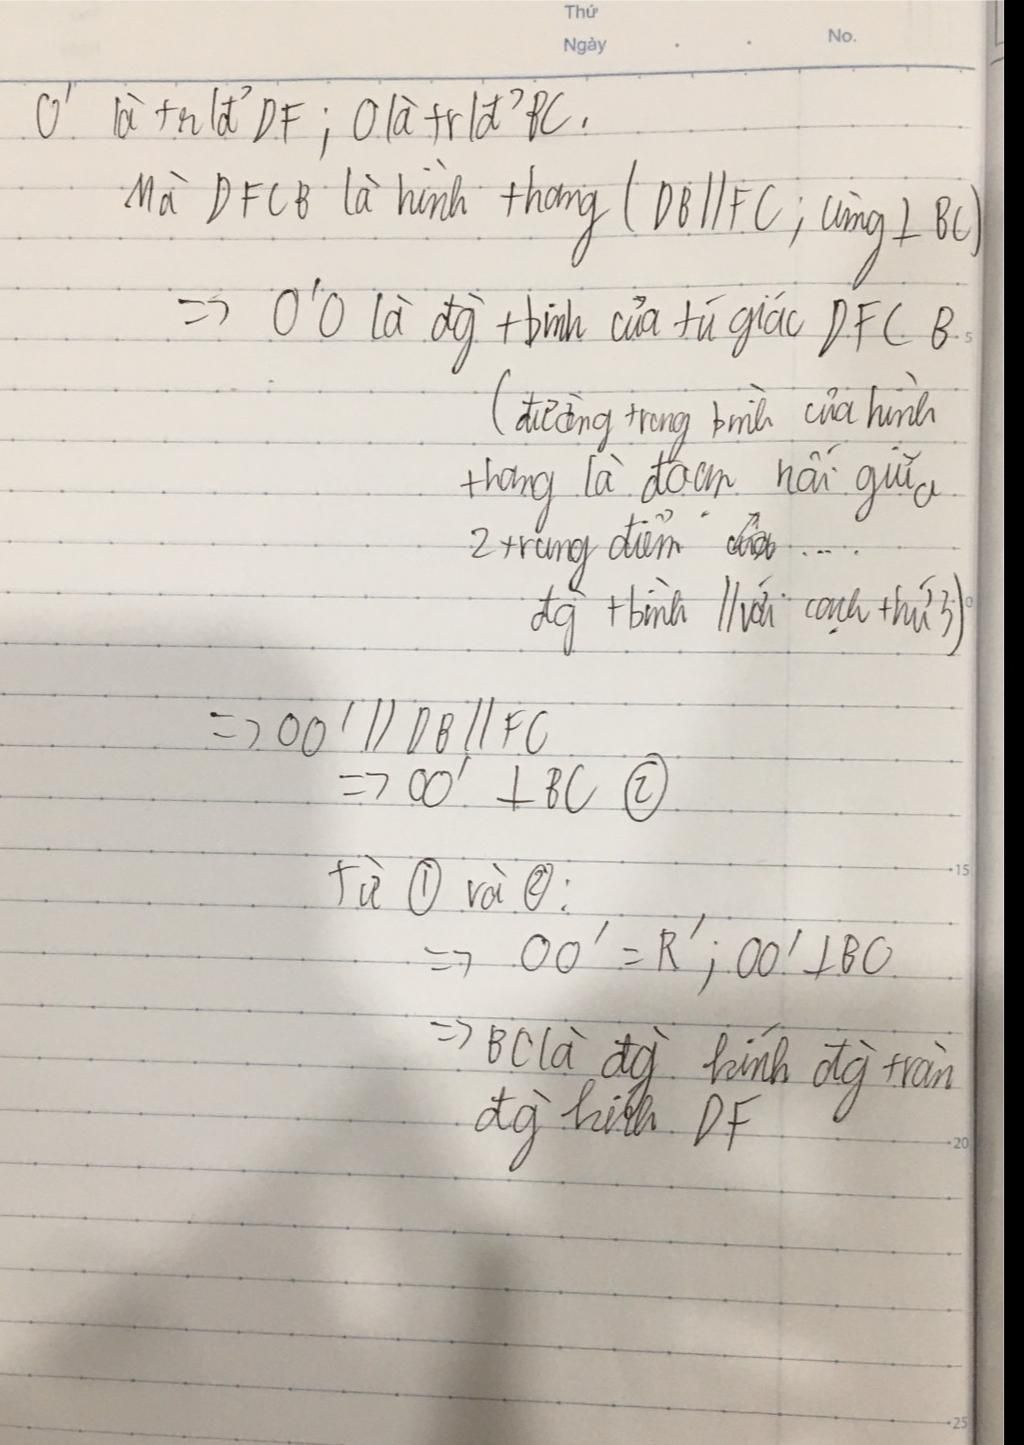 Thứ
Ngày
No.
O' là tr/đ² DF ; O là tr/đ² BC.
Mà DFCB là hình thang ( DB//FC ; cùng ⊥ BC)
=> O'O là đg̀ tbình của tứ giác DFCB
5
(đường trung bình của hình
thang là đoạn nối giữa
2 trung điểm ....
đg̀ tbình // với cạnh thứ 3)
=> OO' // DB // FC
=> OO' ⊥ BC ②
15
Từ ① và ②:
=> OO' = R' ; OO' ⊥ BC
=> BC là đg̀ kính đg̀ tròn
đg̀ kính DF
20
25